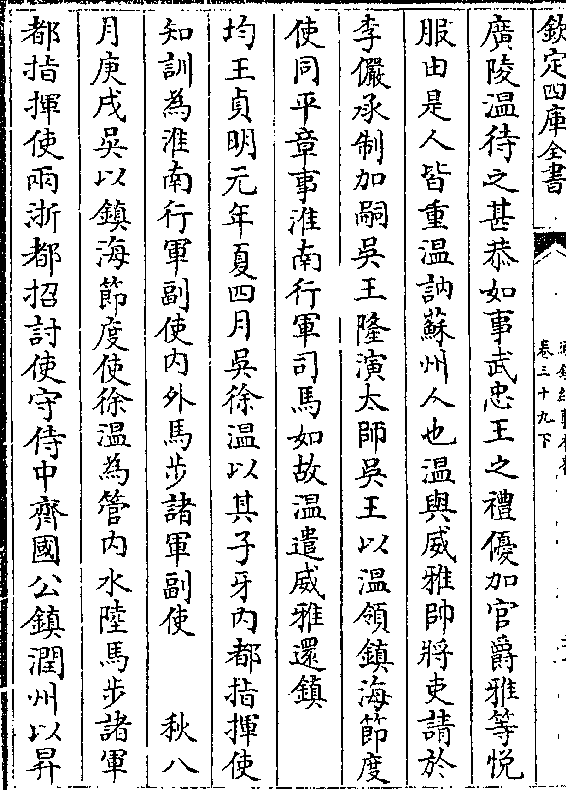 欽定四庫全書
卷三十九下
廣陵温待之甚恭如事武忠王之禮優加官爵雅等悦
服由是人皆重温訥蘇州人也温與威雅帥將吏請於
李儼承制加嗣吳王隆演太師吳王以温領鎮海節度
使同平章事淮南行軍司馬如故温遣威雅還鎮
均王貞明元年夏四月吳徐温以其子牙内都指揮使
知訓為淮南行軍副使内外馬步諸軍副使 秋八
月庚戌吳以鎮海節度使徐温為管内水陸馬步諸軍
都指揮使兩浙都招討使守侍中齊國公鎮潤州以昇